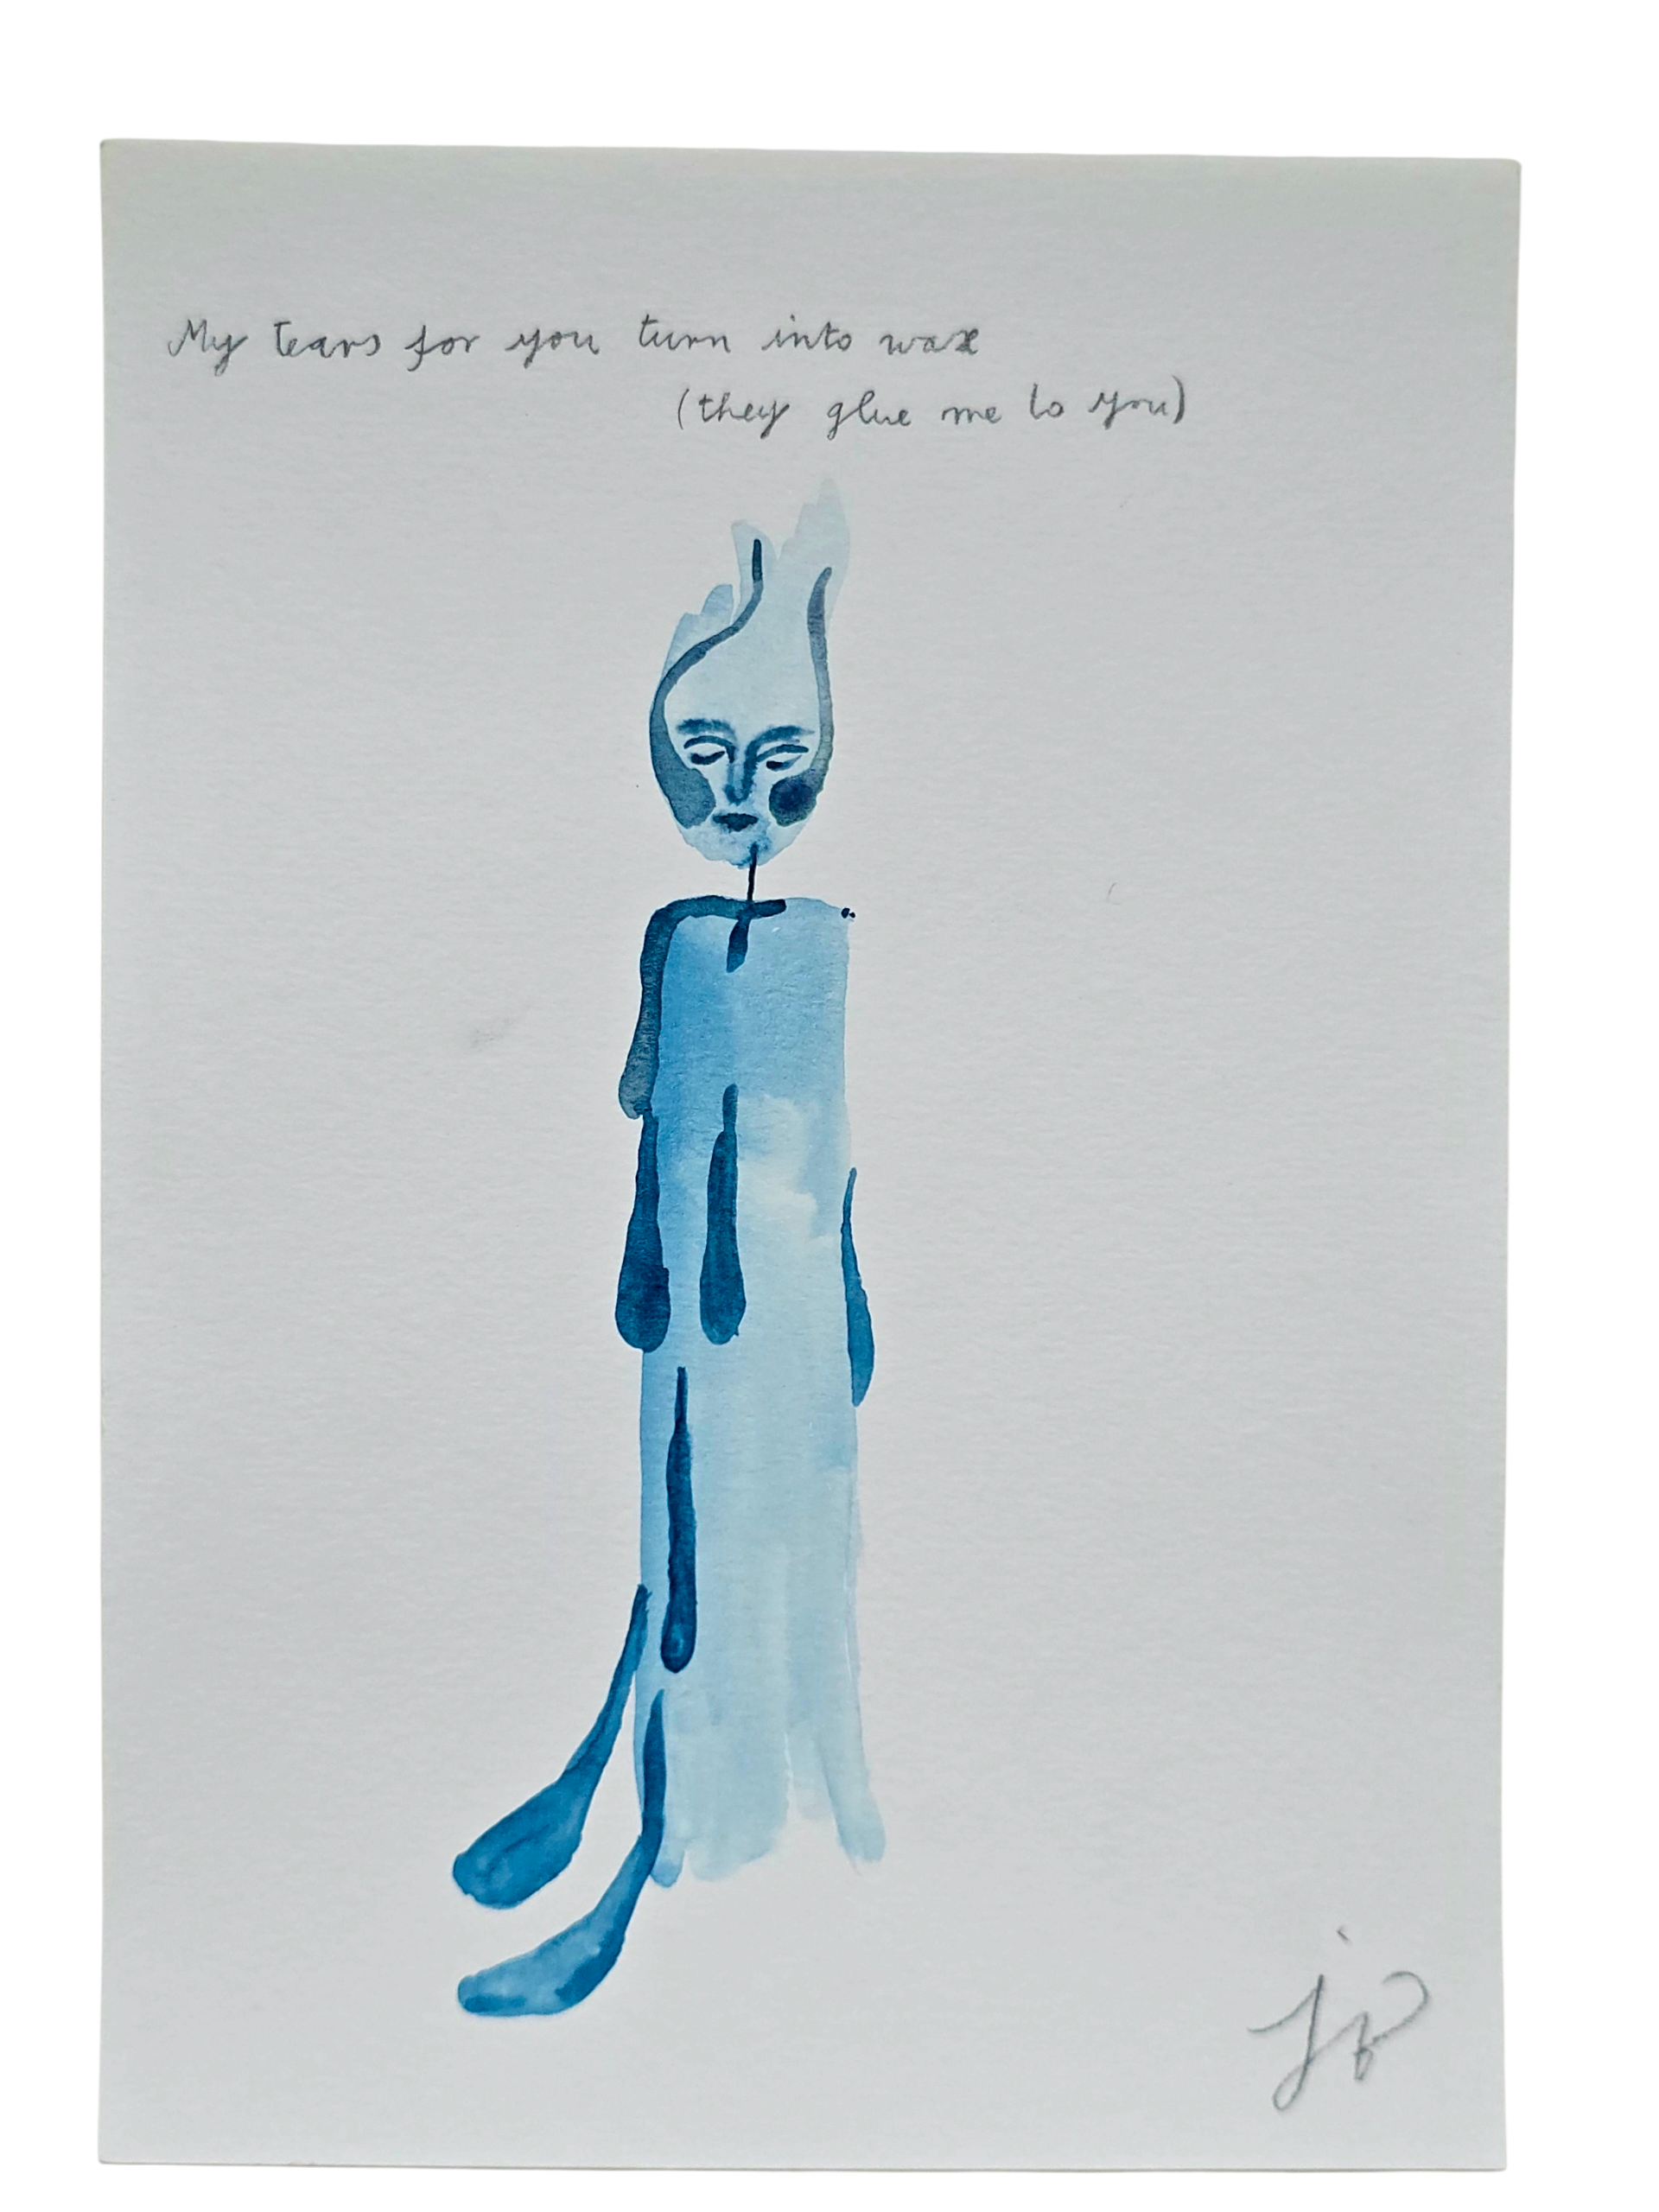 My tears for you turn into wax
(they glue me to you)